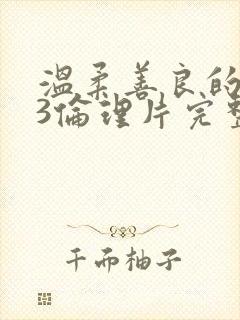 溫柔善良的
3倫理片完整
千而柚子